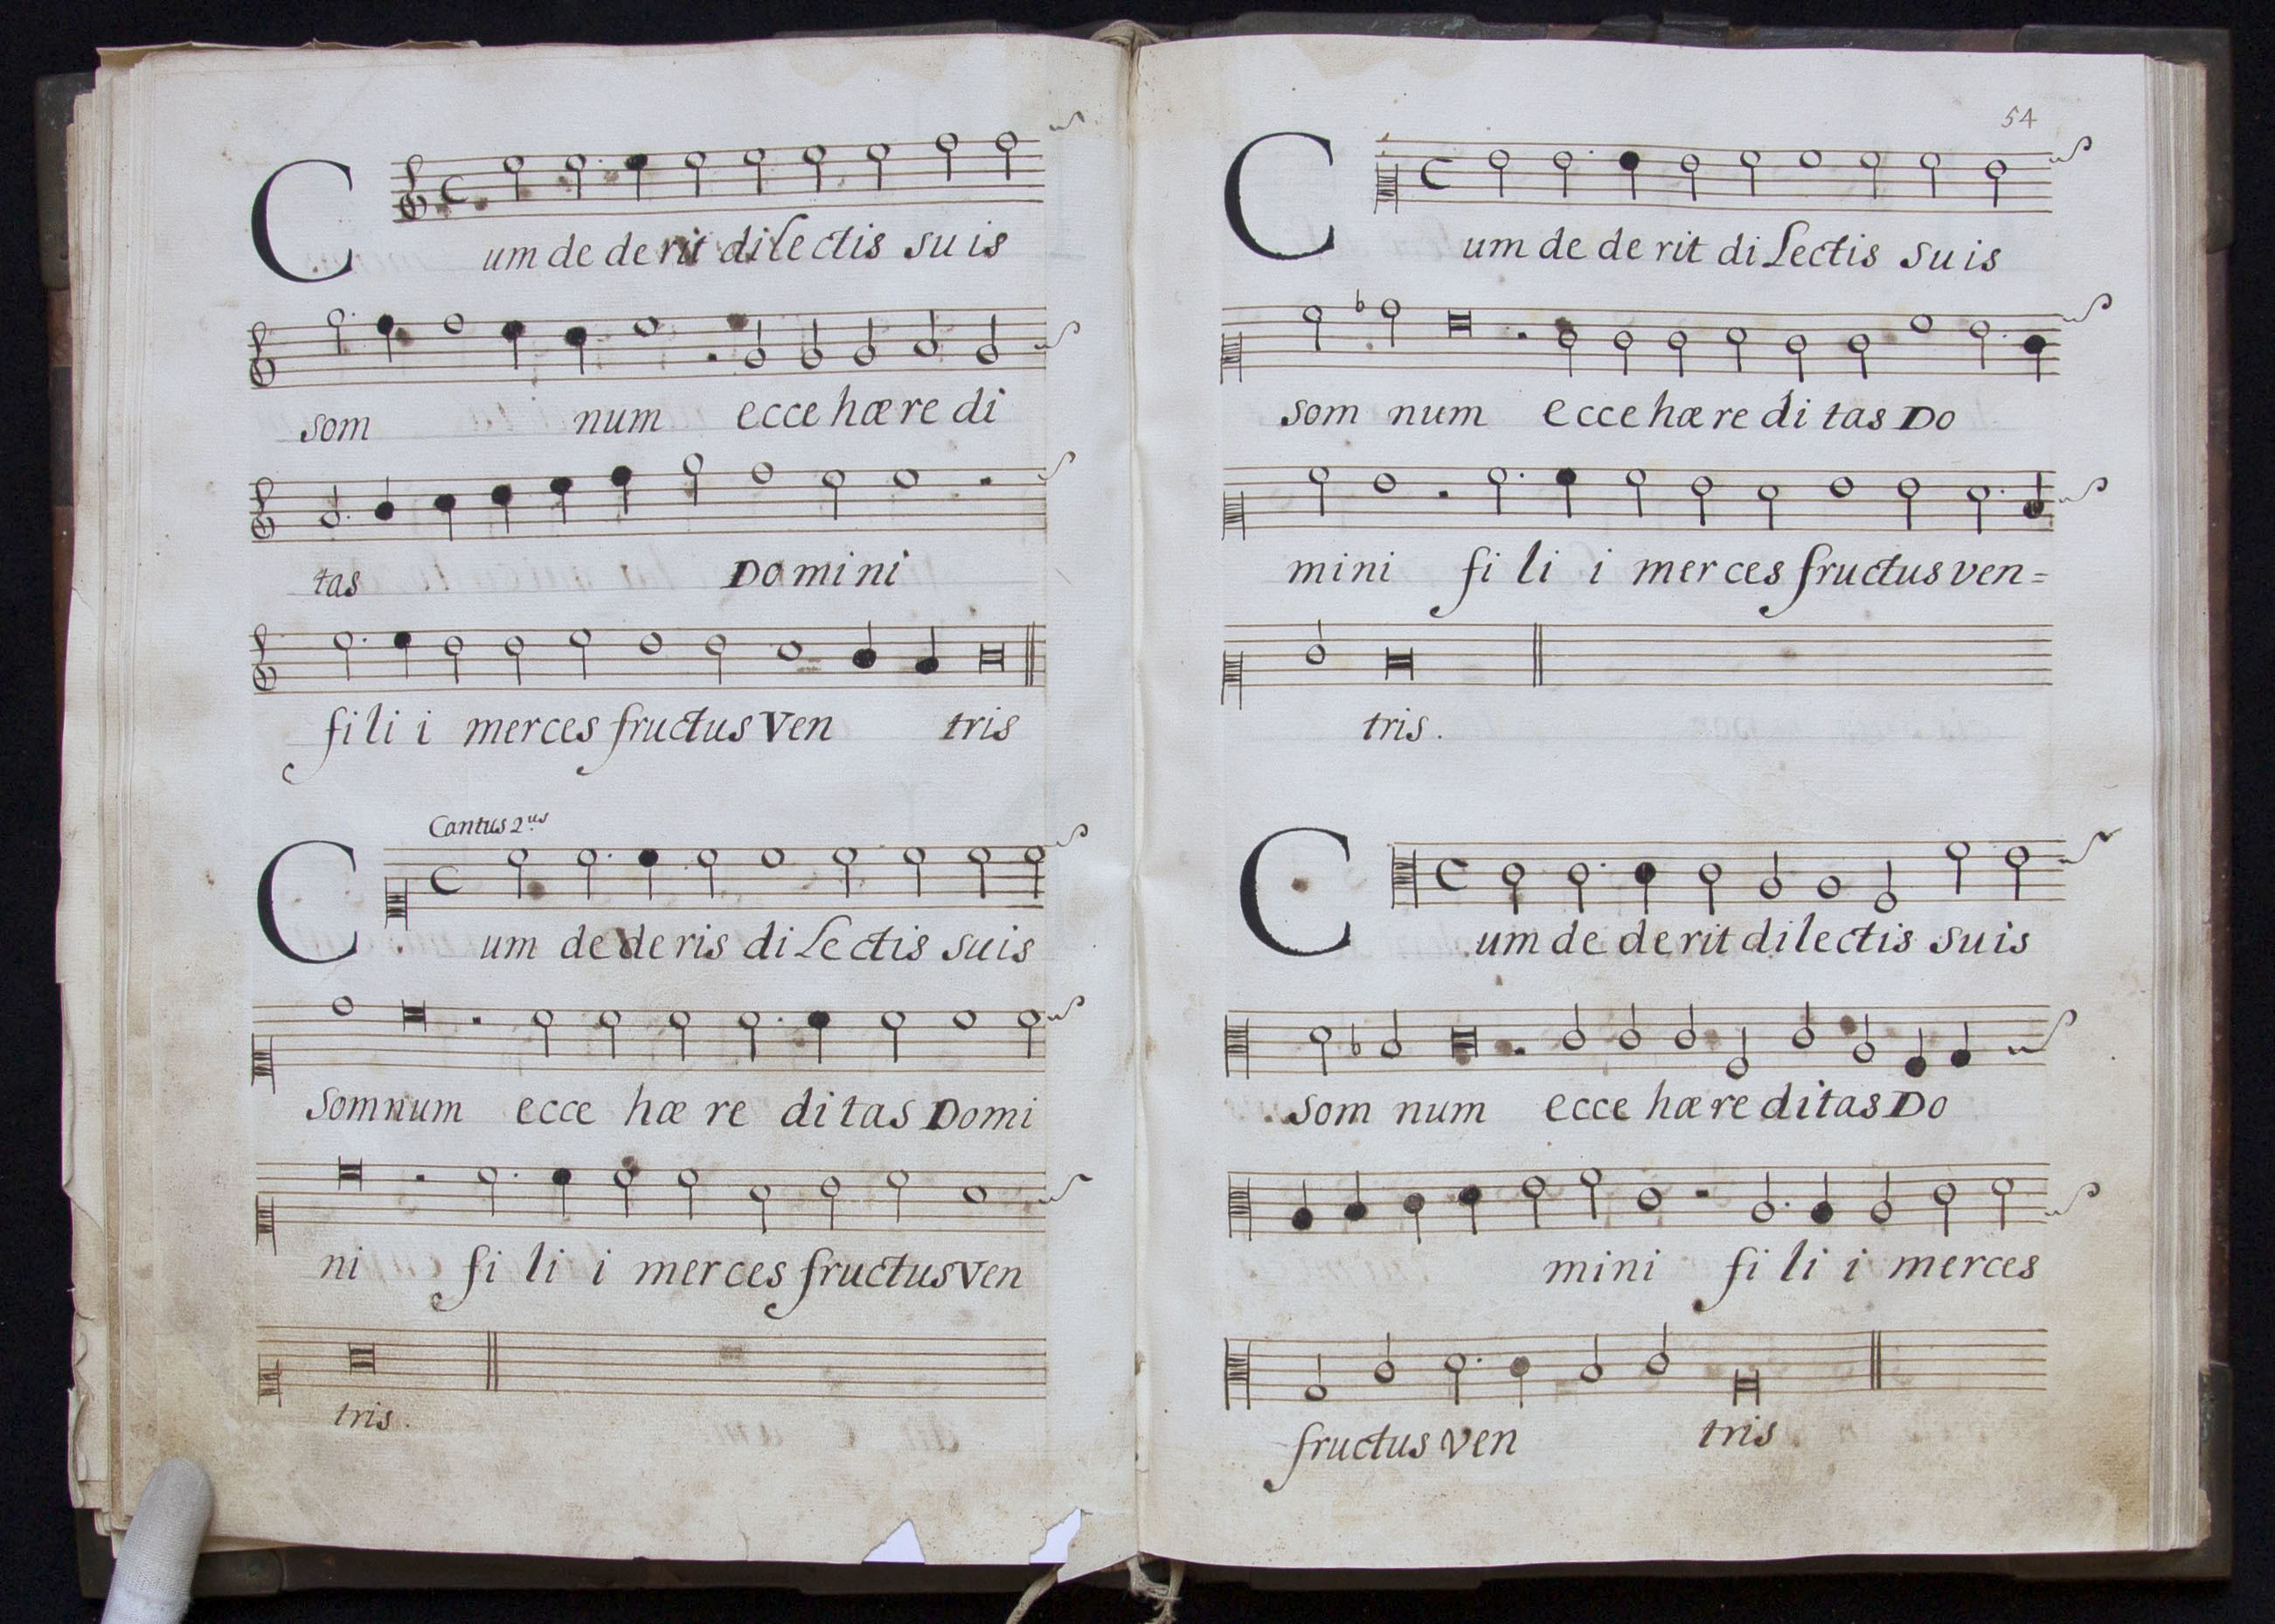 Cum de de rit di lectis su is
som num ecce hæ re di
tas Do mi ni
fi li i merces fructus Ven tris
Cantus 2.us
Cum de de ris di lectis suis
somnum ecce hæ re di tas Domi
ni fi li i merces fructus ven
tris.
54
Cum de de rit di lectis suis
som num ecce hæ re di tas Do
mini fi li i merces fructus ven=
tris.
Cum de de rit di lectis suis
som num ecce hæ re ditas Do
mini fi li i merces
fructus ven tris